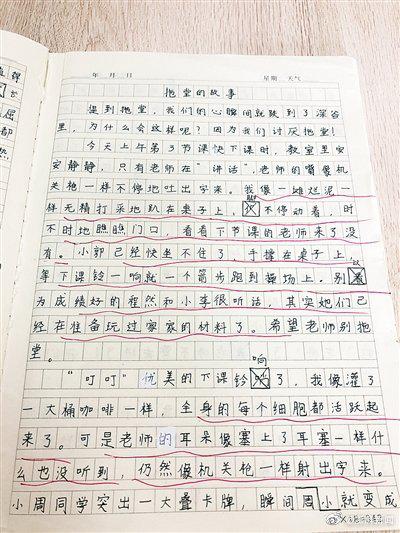 年 月 日 星期 天气
拖堂的故事
提到拖堂，我们的心瞬间就跌到了深谷
里，为什么会这样呢？因为我们讨厌拖堂！
今天上午第3节课快下课时，教室里安
安静静，只有老师在“讲话”，老师的嘴像机
关枪一样不停地吐出字来。我像一摊烂泥一
样无精打采地趴在桌子上，不停动着，时
不时地瞧瞧门口，看看下节课的老师来了没
有。小郭已经快坐不住了，手撑在桌子上，
等下课铃一响就一个箭步跑到操场上。别
以
为成绩好的程然和小李很听话，其实她们已
经在准备玩过家家的材料了。希望老师别拖
堂。
响
“叮叮”优美的下课铃了，我像灌了
一大桶咖啡一样，全身的每个细胞都活跃起
来了。可是老师的耳朵像塞上了耳塞一样什
么也没听到，仍然像机关枪一样射出字来。
小周同学突出一大叠卡牌，瞬间周小就变成